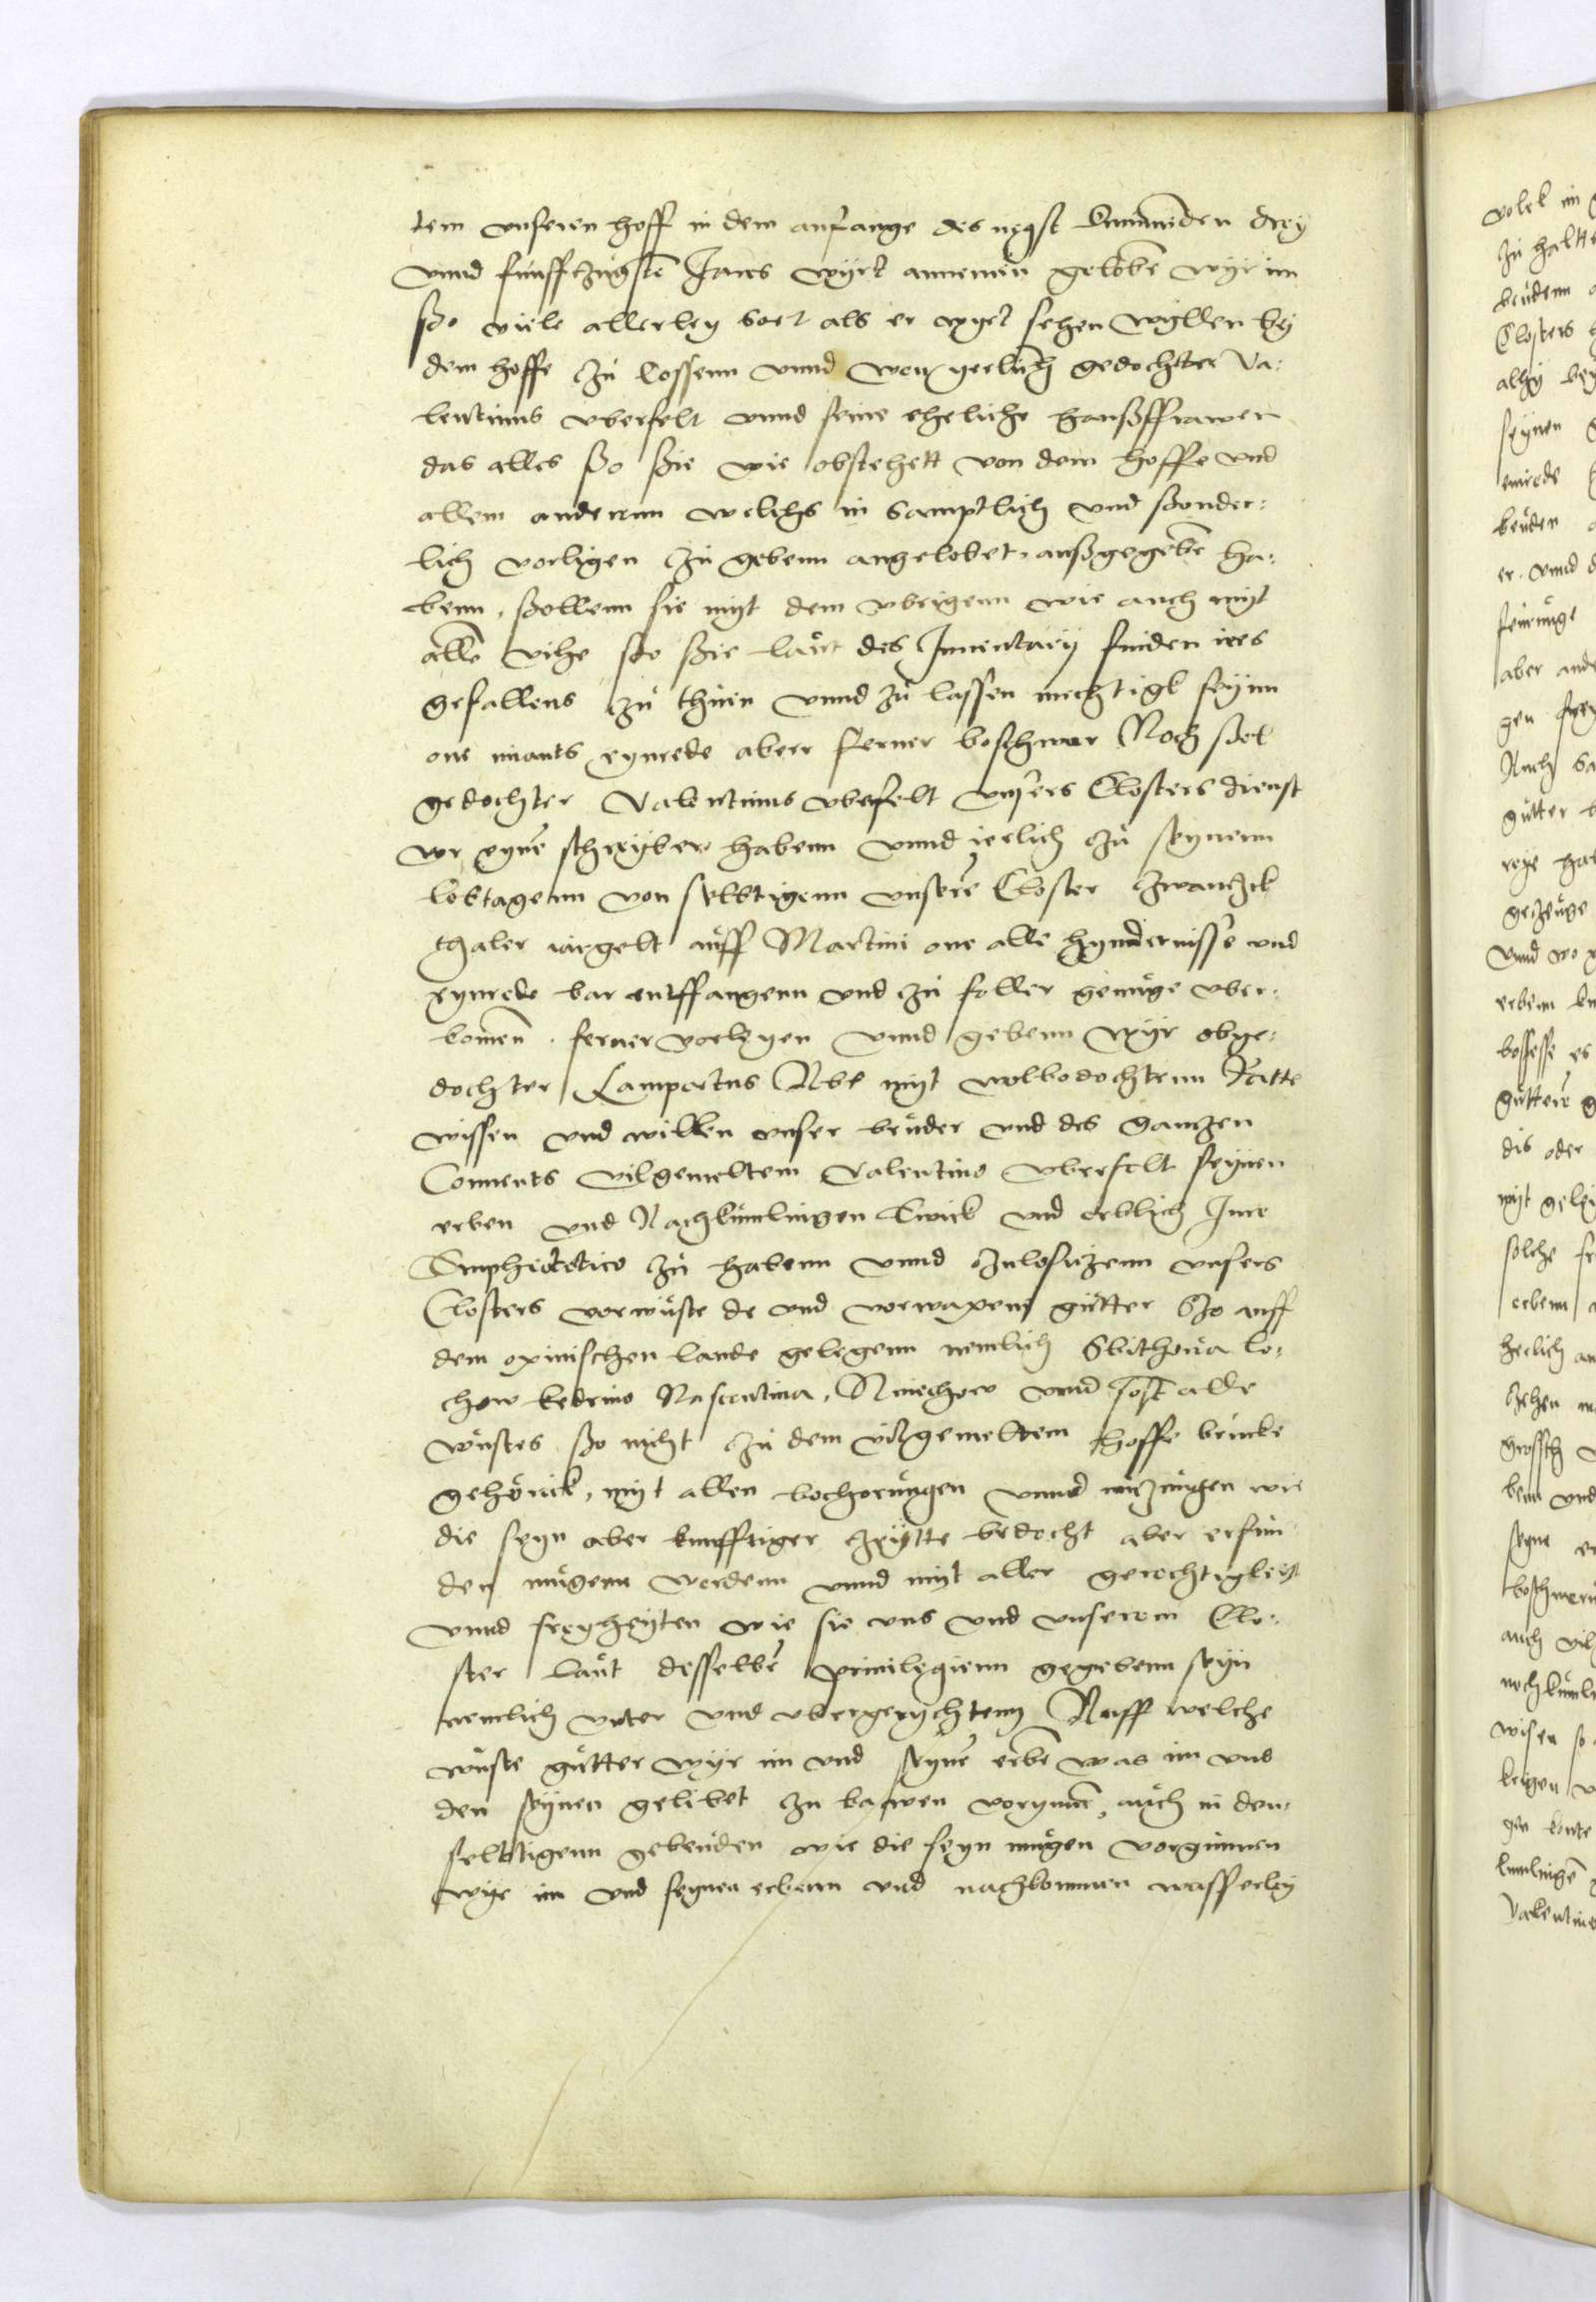 tem vnseren hoff in dem anfange des negst kummenden drey
vnnd funffzugsten Jares wyrt annemen geloben wyr im
sso viele allerley sort als er wyrt sehen wyllen bey
dem hoffe zu lossenn vnnd wen yerlich gedochtter Va-
lentinus vberfelt vnnd seine eheliche haussffrawen
das alles sso ssie wie obstehett von dem hoffe vnd
allem anderenn welchs in samptlich vnd ssonder-
lich vorligen zu gebenn angelobet, aussgegeben ha-
benn, ssollenn sie myt dem vbrigenn wie auch myt
allem vihe sso ssie laut des Inuentary finden ires
gefallens zu thuen vnnd zu lassen mechtigk seynn
one imants eynrede aberr ferner beschwer Noch ssol
gedochter Valentinus vberfelt vnsers Closters dienst
vor eynen schreyber habenn vnnd ierlich zu seynenn
lebtagenn von selbtigenn vnserem Closter zwanzik
thaler iargelt auff Martini one alle hynndernisse vnd
eynrede bar entffangenn vnd zu foller genuge vber-
komen. ferner vorleyen vnnd gebenn wyr obge-
dochter Lampertus Abt myt wolbedochtenn Ratte
wissen vnd willen vnser bruder vnd des ganzen
Conuents vilgemeltem Valentino vberfelt seynen
erben vnd Nachkumlingen Ewick vnd erblich Jure
Emphiteotico zu habenn vnnd zubesizenn vnsers
Closters vorwuste de vnd vorwaxene gutter sso auff
dem opinischen lande gelegenn nemlich Slithona lo-
chow kedrino Nascentina, Niechow vnnd sost alle
wustes sso nicht zu dem vilgemeltem hoffe brucke
gehorich, myt allen bochorungen vnnd nuzungen wie
die seyn aber kunfftiger zeytte bedocht aber erfun
den mugenn werdenn vnnd myt aller gerechtigkeyt
vnnd freyheyten wie sie vns vnd vnserem Clo-
ster laut desselben priuilegienn gegebenn seyn
nemlich vnter vnd vbergerychtenn Auff welche
wuste gutter wyr im vnd seynen erben was im vnd
den seynen gelibet zu bawen vorgunnen, auch in den-
selbtigenn gebeuden wie die seyn mugen vorgunnen
wyr im vnd seynen erbenn vnd nachkommen wasserley